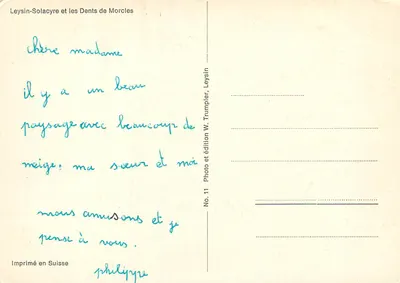 Leysin-Solacyre et les Dents de Morcles
chère madame
il y a un beau
paysage avec beaucoup de
neige, ma sœur et moi
nous amusons et je
pense à vous.
philippe
Imprimé en Suisse
No. 11 Photo et édition W. Trumpler, Leysin